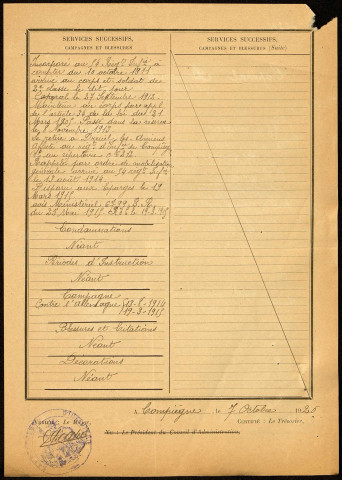 SERVICES SUCCESSIFS,
CAMPAGNES ET BLESSURES
Incorporé au 54 Rég. Inf. à
compter du 10 octobre 1911
arrivé au corps et soldat de
2e classe le dit jour
Caporal le 27 Septembre 1912.
Maintenu au corps par appl.
de l'article 33 de la loi du 21
Mars 1905. Passé dans la réserve
le 8 Novembre 1913
se retire à Dreuil les Amiens
Affecté au rég. d'Inf. de Compiègne
Rappelé par ordre de mobilisation
générale arrivé au 54 rég. Inf.
le 13 août 1914
Disparu aux Eparges le 19
Mars 1915
avis Ministériel
du 25 Mai 1915
Condamnations
Néant
Périodes d'Instruction
Néant
Campagne
Contre l'Allemagne 13-8-1914
19-3-1915
Blessures et Citations
Néant
Décorations
Néant
SERVICES SUCCESSIFS,
CAMPAGNES ET BLESSURES (Suite)
A Compiègne le 7 Octobre 1920
CERTIFIÉ : Le Trésorier,
Le Président du Conseil d'Administration,